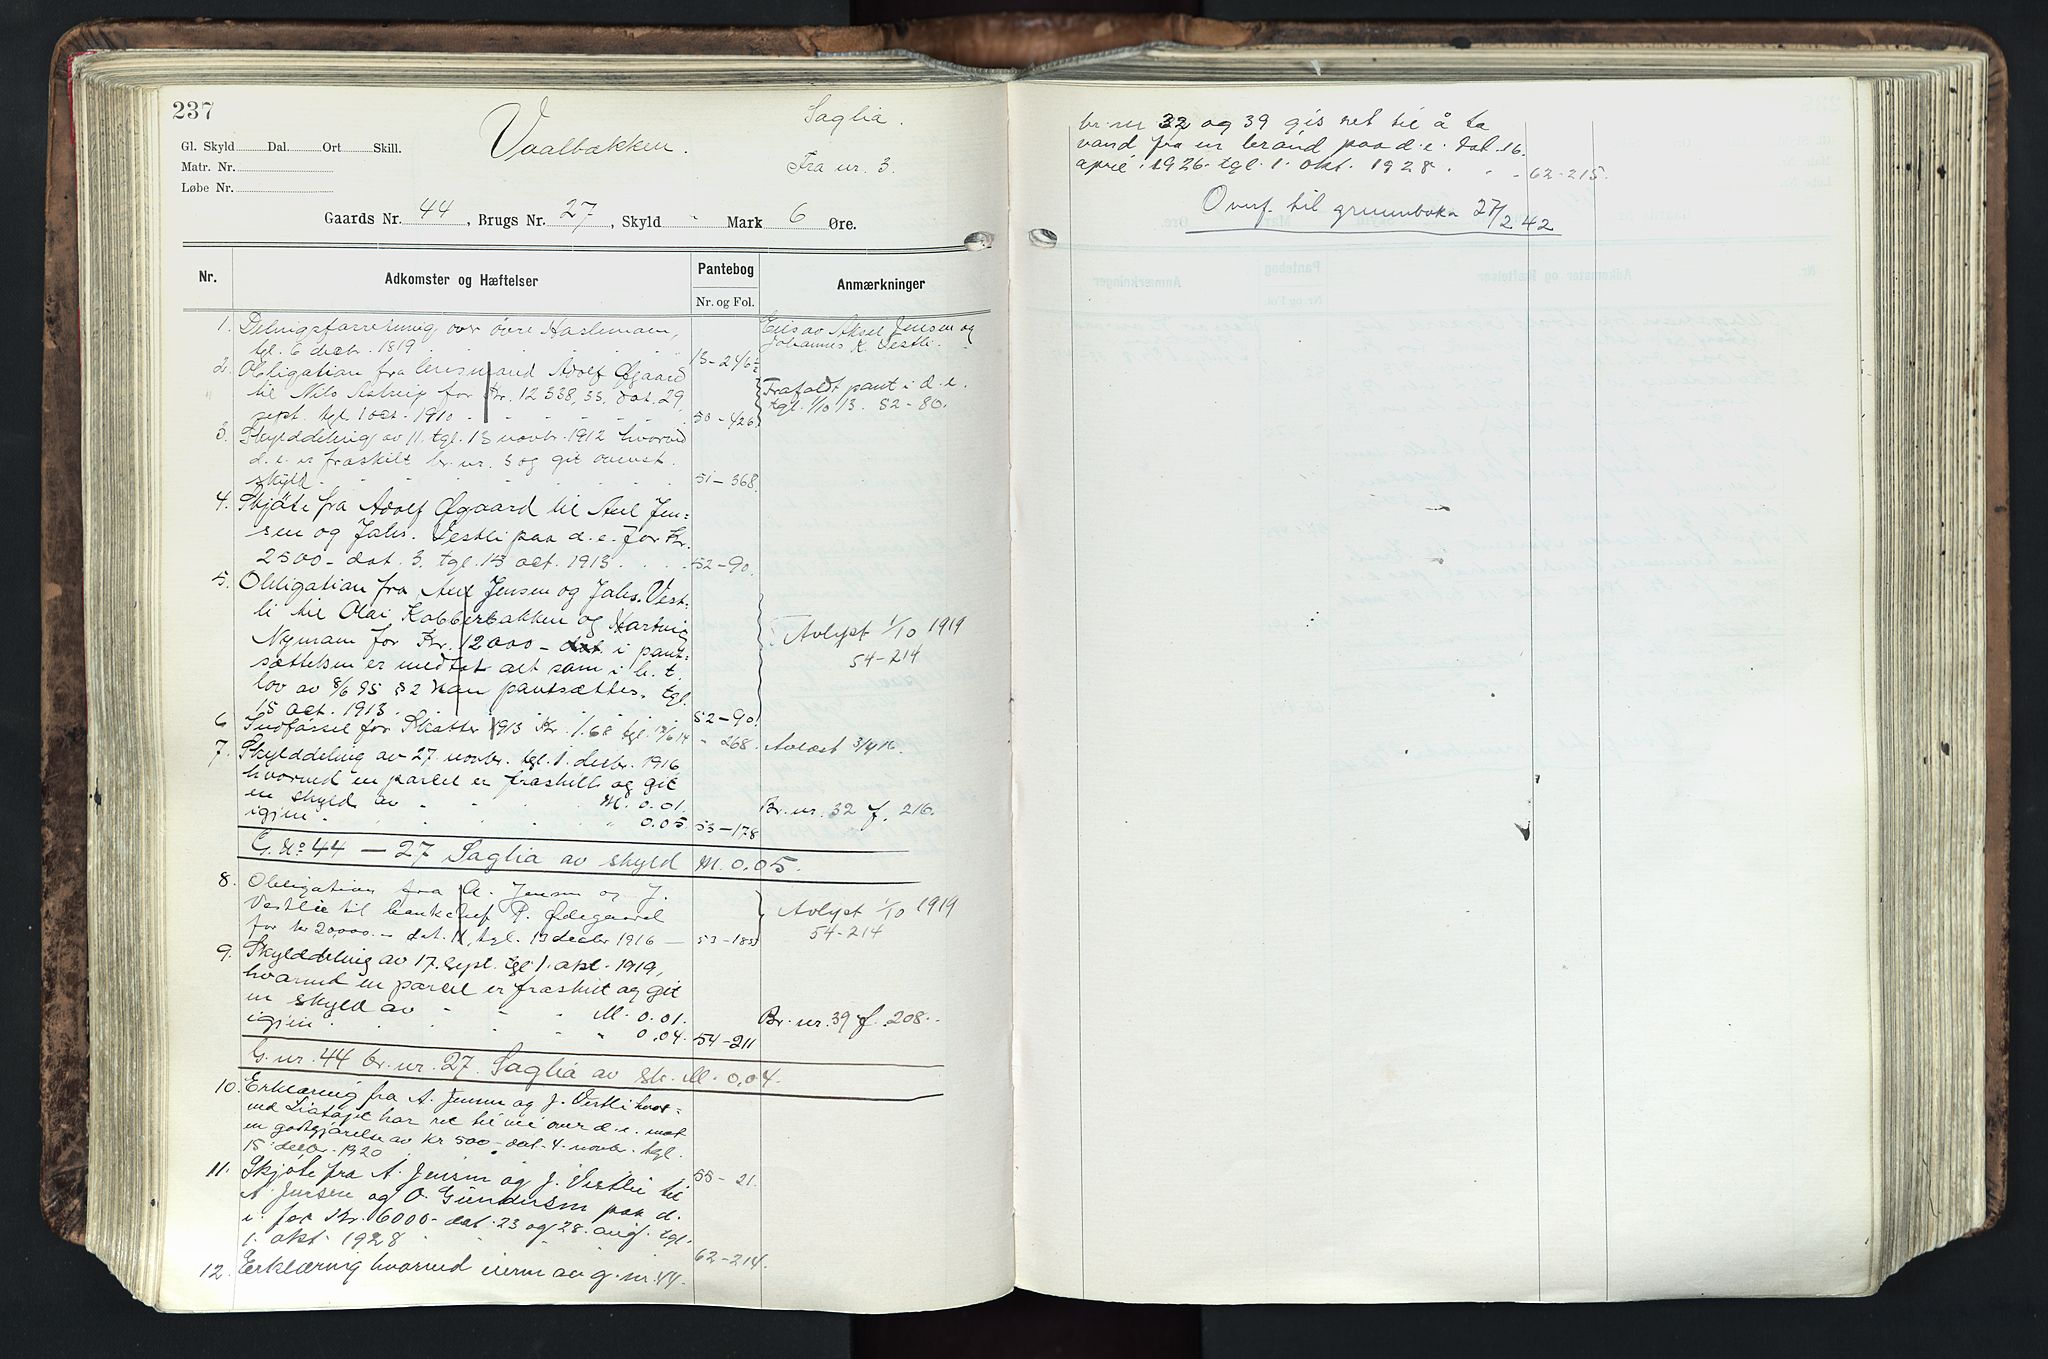 237
Vaalbakken.
Saglia.
Fra nr. 3.
Gl. Skyld Dal. Ort Skill.
Matr. Nr.
Løbe Nr.
Gaards Nr. 44, Brugs Nr. 27, Skyld - Mark 6 Øre.
Nr. Adkomster og Hæftelser Pantebog Anmærkninger
Nr. og Fol.
1. Delingsforretning over övre Haslemoen, Eies av Aksel Jensen og
tgl. 6 decbr. 1819 13-246 Johannes K. Vestli.
2. Obligation fra Adolf Øgaard
til Nils Astrup for Kr. 12538,35, dat. 29 Frafaldt pant i d. e.
sept. tgl. 1 oct. 1910 50-426 tgl. 1/10 13. 52-80.
3. Skylddeling av 11. tgl. 13 novbr. 1912 hvorved
d. e. er fraskilt br. nr. 3 og git ovenst.
skyld. 51-368
4. Skjöte fra Adolf Øgaard til Axel Jen=
sen og Johs. Vestli paa d. e. for Kr.
2500- dat. 3. tgl. 15 oct. 1913. 52-90.
5. Obligation fra Axel Jensen og Johs. Vest-
li til Olai Kobberbakken og Hartvig
Nyman for Kr. 12000- i pant= Avlyst 1/10 1919
sættelsen er medtat alt som i h. t. 54-214
lov av 8/6 95 § 2 kan pantsættes. tgl.
15 oct. 1913. 52-90
6 Indførsel for Skatter 1913 Kr. 1.68 tgl. 14 - 268. Avlæst 3/4 16.
7. Skylddeling av 27. novbr. tgl. 1. decbr. 1916
hvorved en parcel er fraskilt og git
en skyld av M. 0.01. Br. nr. 32 f. 216.
igjen. 0.05. 53-178
G. No 44 - 27 Saglia av skyld M. 0.05.
8. Obligation fra A. Jensen og J.
Vestlie til banksjef P. Ødegaard Avlyst 1/10 1919
for kr 20,000.- dat. 11, tgl. 13 decbr 1916 - 53-185 54-214
9. Skylddeling av 17. sept. tgl 1. okt. 1919,
hvorved en parcel er fraskilt og git
en skyld av M. 0.01. Br. nr. 39 f. 208.
igjen " 0.04. 54-211
G. nr. 44 br. nr. 27. Saglia av sk. M. 0.04.
10. Erklæring fra A. Jensen og J. Vestli hvor=
ved har ret til vei over d. e. mot
en godtgjörelse av Kr 500- dat. 4. novbr. tgl.
15 decbr. 1920 55-21.
11. Skjöte fra A. Jensen og J. Vestlie til
A. Jensen og O. Gundersen paa d.
e. for Kr. 6000- dat. 23 og 28. aug. tgl.
1. okt. 1928 62-214.
12. Erklæring hvorved eieren av g. nr. 44.
br. nr 32 og 39 gis ret til å ta
vand fra en brönd paa d. e. dat. 16.
april 1926. tgl. 1. okt. 1928. 62-215.
Overf. til grunnboka 27/2 42